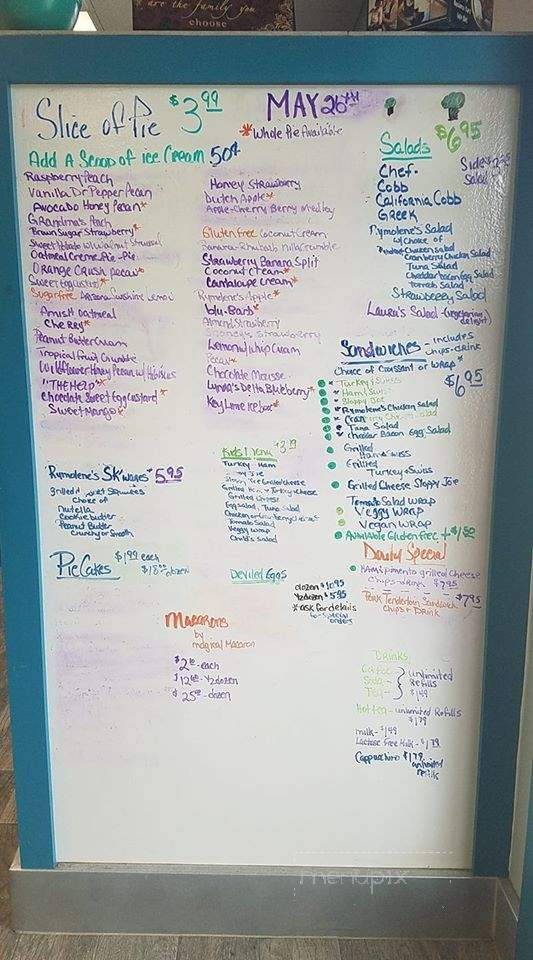 are the family you
choose
Slice of Pie $3.99
MAY 26TH
*Whole Pie Available
Add A Scoop of ice Cream 50¢
Raspberry Peach
Vanilla Dr Pepper Pecan
Avocado Honey Pecan*
Grandma's Peach
Brown Sugar Strawberry*
Sweet Potato w/Walnut Streusel
Oatmeal Creme Pie-Pie
Orange Crush Pecan*
Sweet Egg Custard*
Sugar free Arizona Sunshine Lemon
Amish Oatmeal
Cherry*
Peanut Butter Cream
Tropical Fruit Crumble
Wildflower Honey Pecan w/Hibiscus
"THE HELP"*
Chocolate Sweet Egg Custard*
Sweet Mango*
Honey Strawberry
Dutch Apple*
Apple-Cherry Berry Medley
Gluten Free Coconut Cream
Banana-Rhubarb Milk Crumble
Strawberry Banana Split
Coconut Cream*
Cantaloupe Cream*
Rymolene's Apple*
Blu-Barb*
Almond Strawberry
Strawberry
Lemon w/whip Cream
Pecan*
Chocolate Mousse
Lynda's Delta Blueberry*
Key Lime Ice box*
Salads $6.95
Side Salad
Chef.
Cobb
California Cobb
Greek
Rymolene's Salad
w/choice of
Chicken Salad
Cranberry Chicken Salad
Tuna Salad
Cheddar bacon Egg Salad
Tomato Salad
Strawberry Salad
Laura's Salad-(vegetarian delight)
Sandwiches - includes chips-drink
Choice of Croissant or Wrap* $6.95
* Turkey & Swiss
* Ham & Swiss
* Sloppy Joe
* Rymolene's Chicken Salad
* Cranberry Chicken Salad
* Tuna Salad
* Cheddar Bacon Egg Salad
Grilled
Ham & Swiss
Grilled
Turkey & Swiss
Grilled Cheese Sloppy Joe
Tomato Salad Wrap
Veggy Wrap
Vegan Wrap
Available Gluten Free +$1.50
Rymolene's SK'wiches 5.95
grilled
Choice of
Nutella
Cookie butter
Peanut Butter
Crunchy or Smooth
Kids Menu
Turkey - Ham
Sloppy Joe
Grilled Cheese
Grilled Ham or Turkey & Cheese
Grilled Cheese
Egg Salad, Tuna Salad
Chicken or Cranberry Chicken
Tomato Salad
Veggy Wrap
Child's Salad
Pie Cakes $1.99 each
dozen
Deviled Eggs
dozen $10.95
1/2 dozen $5.95
*ask for details
to-special
orders
Daily Special
Ham & pimento grilled Cheese
Chips & Drink $7.95
Pork Tenderloin Sandwich $7.95
chips + Drink
Macarons
by
Magical Macaron
each
1/2 dozen
dozen
Drinks
Coffee
Soda
Tea
unlimited
Refills
$1.49
Hot tea - unlimited Refills
$1.79
milk - $1.49
Lactose Free Milk - $1.79
Cappuccino $1.79
unlimited
refills
menupix